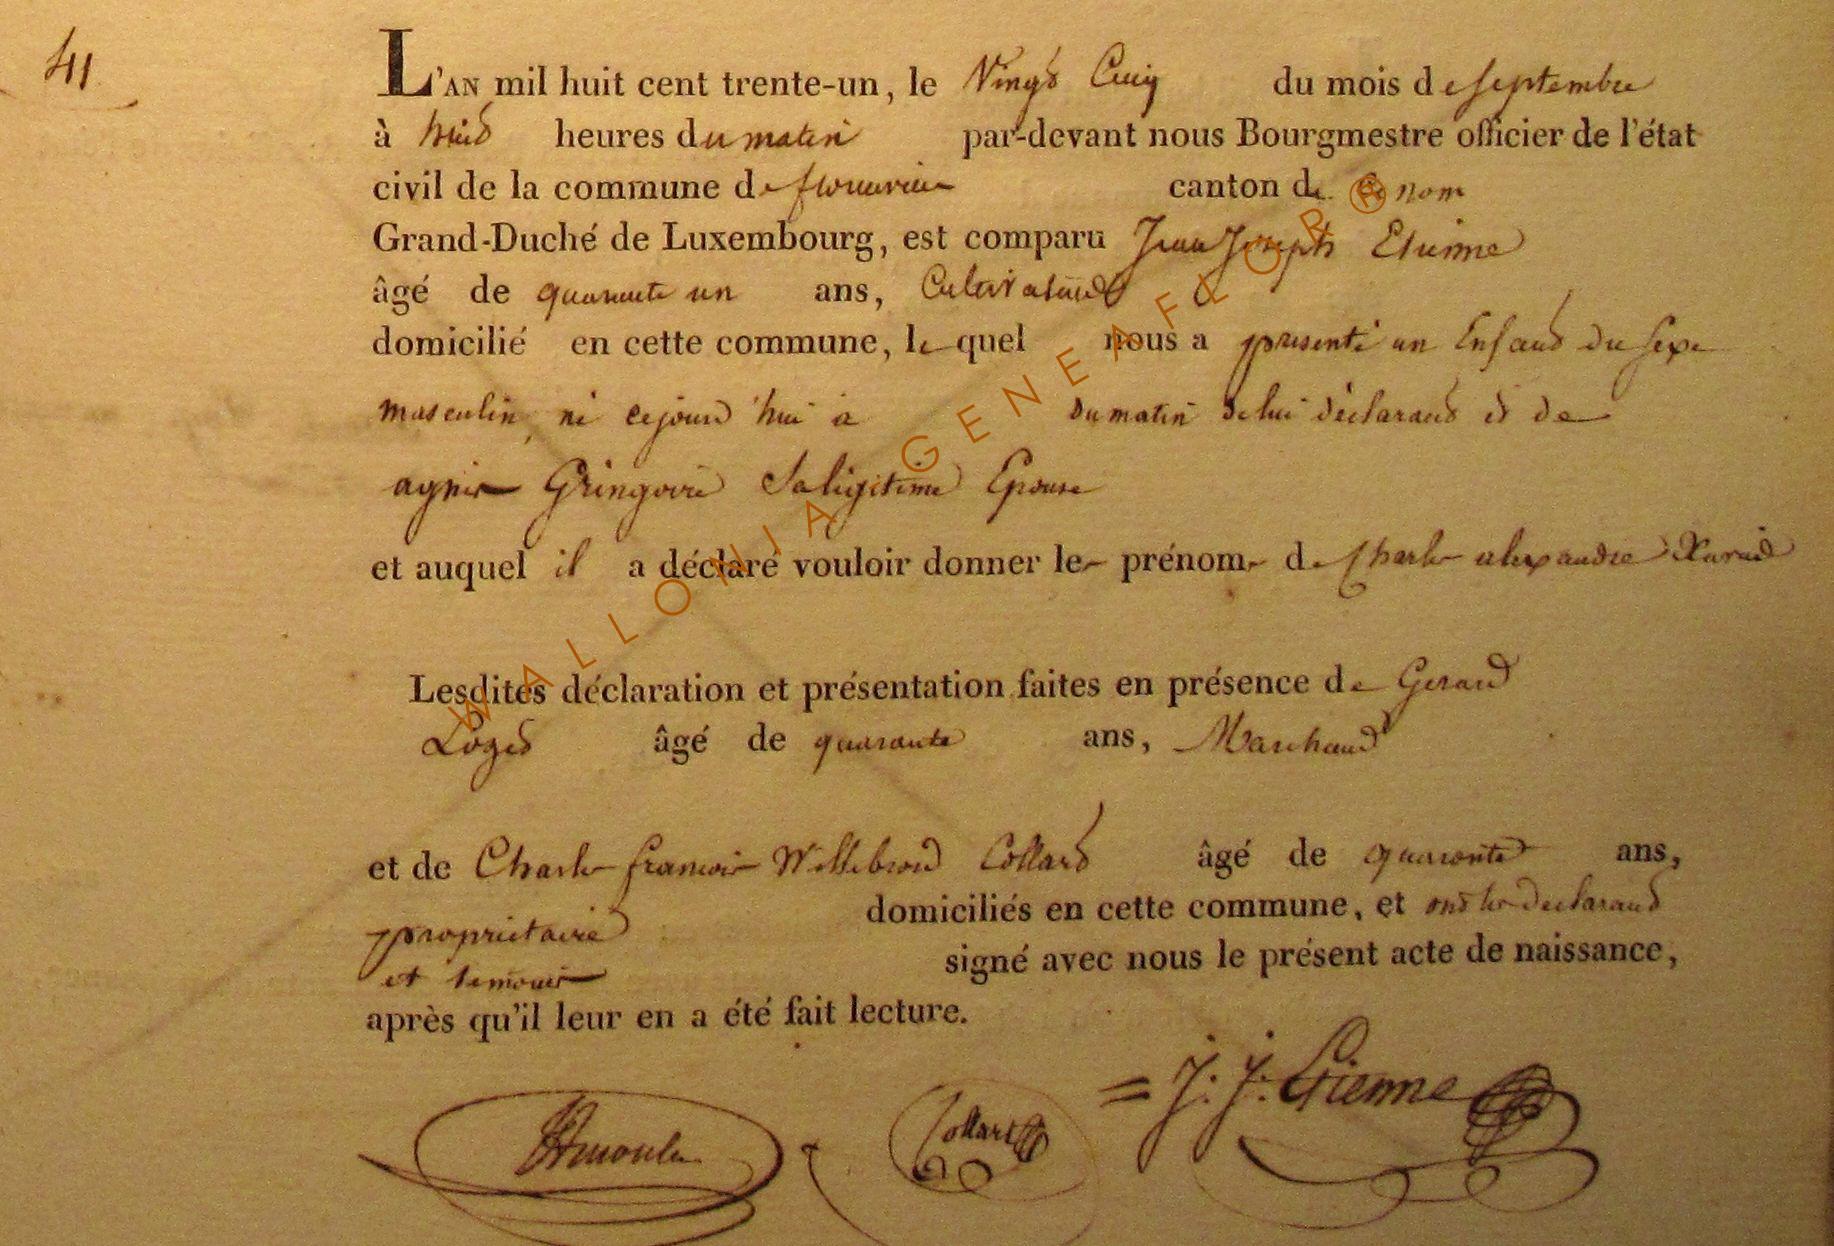 41
L'AN mil huit cent trente-un, le Vingt Cinq du mois de septembre
à huit heures du matin par-devant nous Bourgmestre officier de l'état
civil de la commune de canton de nom
Grand-Duché de Luxembourg, est comparu Jean Joseph Etienne
âgé de quarante un ans, Cultivateur
domicilié en cette commune, le quel nous a presenté un Enfant du sexe
masculin, né cejourd'hui à du matin de lui déclarant et de
agnès Gringoire Sa légitime Epouse
et auquel il a déclaré vouloir donner les prénoms de Charles alexandre Xavier
Lesdites déclaration et présentation faites en présence de Gerard
âgé de quarante ans, Marchand
et de Charles francois Willebrord Collard âgé de quarante ans,
proprietaire domiciliés en cette commune, et ont les declarant
et temoins signé avec nous le présent acte de naissance,
après qu'il leur en a été fait lecture.
Collard J. J. Etienne
WALLONIA GENEAFLOR ®